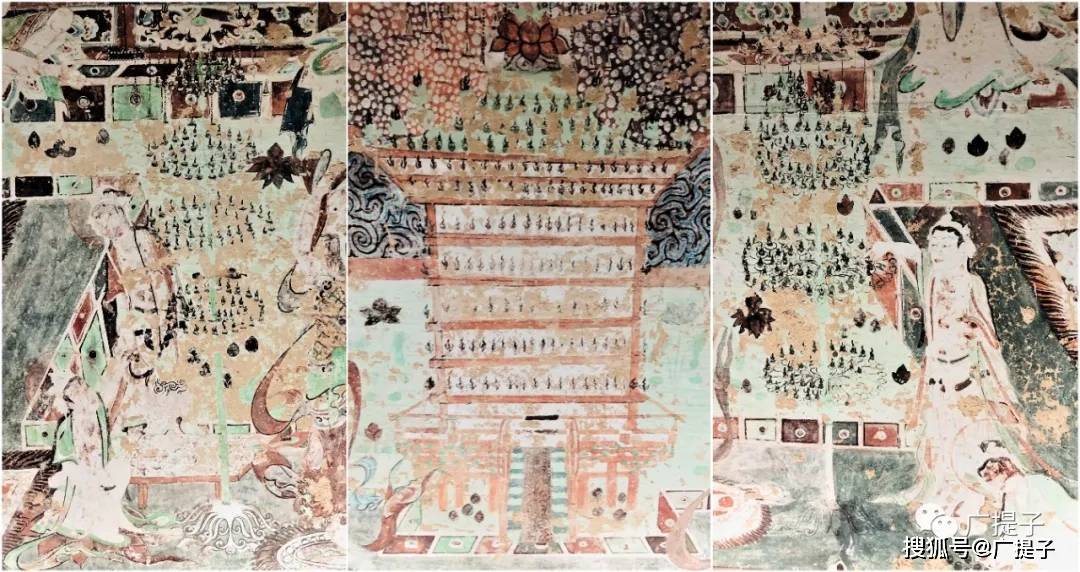 广提子
搜狐号@广提子